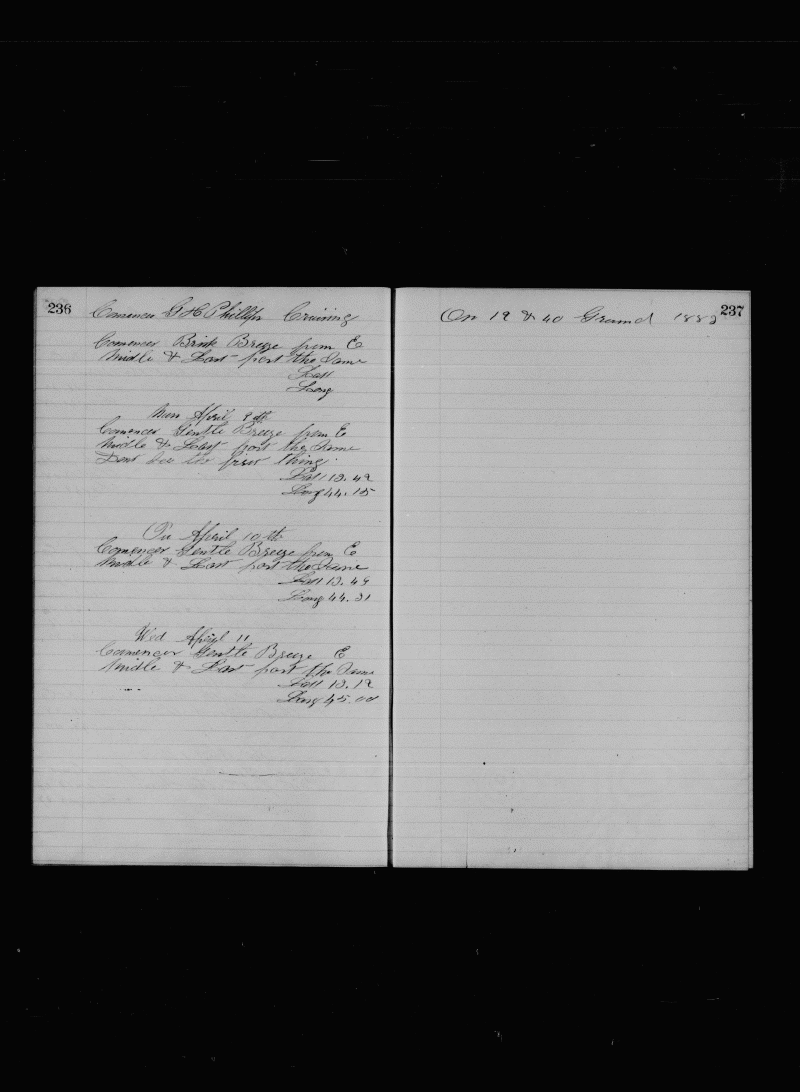 236
Comences G H Phillips Cruiring
Comences Brisk Breeze from E
Midle & Last part the Same
Latt
Long
Mon April 9th
Comences Gentle Breeze from E
Midle & Last part the Same
Dont see the first thing
Latt 12.42
Long 44.15
Tu April 10th
Comences Gentle Breeze from E
Midle & Last part the Same
Latt 12.49
Long 44.31
Wed April 11
Comences Gentle Breeze E
Midle & Last part the Same
Latt 12.12
Long 45.00
237
On 12 & 40 Ground 1883